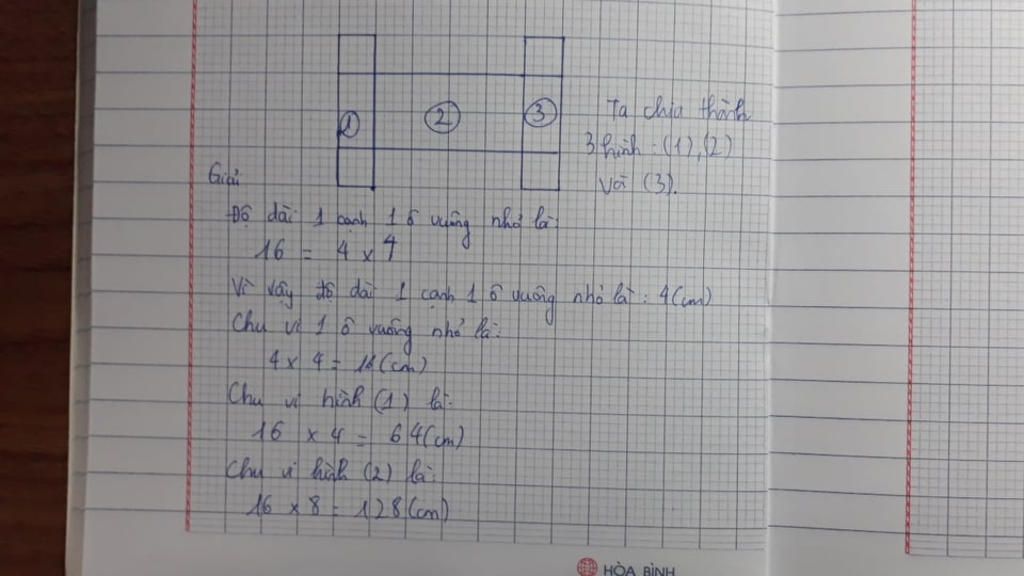 1
2
3
Ta chia thành
3 hình : (1), (2)
và (3).
Giải
Độ dài 1 cạnh 1 ô vuông nhỏ là:
16 = 4 x 4
Vì vậy độ dài 1 cạnh 1 ô vuông nhỏ là : 4(cm)
Chu vi 1 ô vuông nhỏ là:
4 x 4 = 16(cm)
Chu vi hình (1) là:
16 x 4 = 64(cm)
Chu vi hình (2) là:
16 x 8 = 128(cm)
HÒA BÌNH